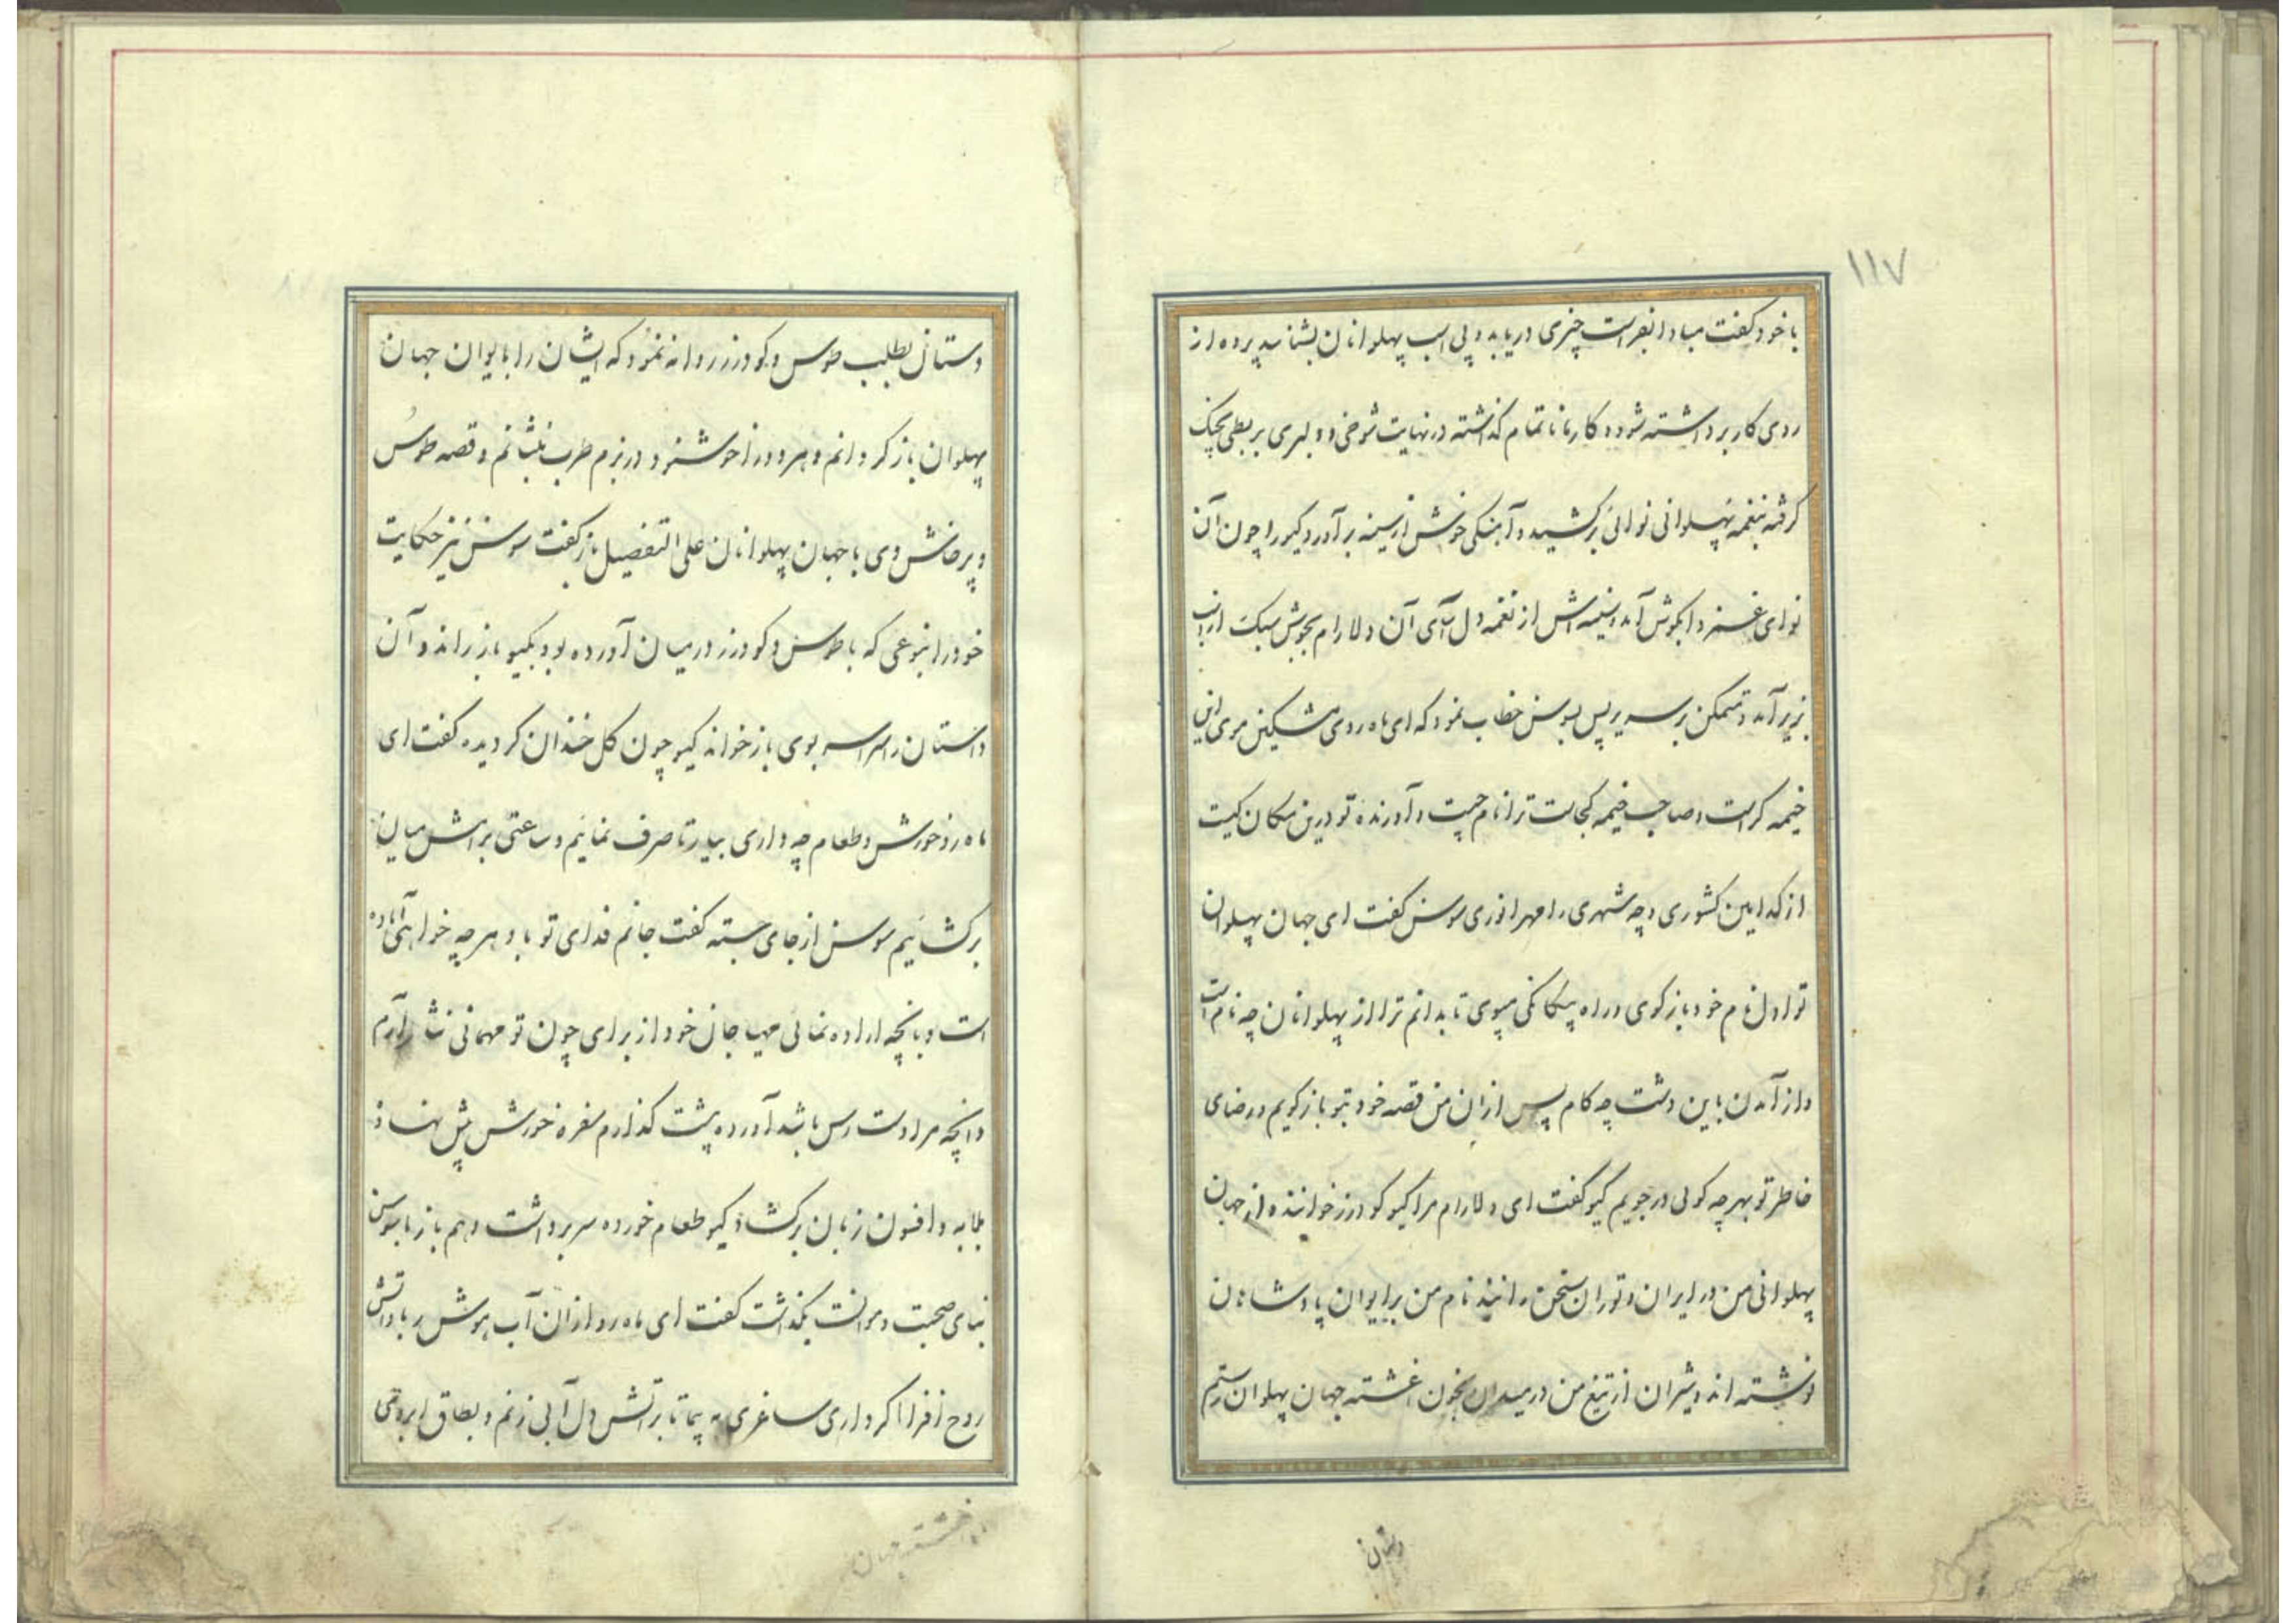 ۱۱۷
با خود گفت مبادا بفراست چیزی دریابد و پی اسب پهلوانان بشناسد پرده از
روی کار برداشته شود و کار ناتمام گذاشته در نهایت شوخی و دلبری بربطی بچنگ
گرفته بنغمه پهلوانی نوائی برکشید و آهنگی خوش از سینه برآورد گیو را چون آن
نوای غمزدا بگوش آمد و سینه اش از نغمه دل آرای آن دلارام بجوش سبک از اسب
بزیر آمد و متمکن بر سریر پس بسوسن خطاب نمود که ای ماه روی مشکین موی این
خیمه کراست و صاحب خیمه کجاست ترا نام چیست و آورنده تو درین مکان کیست
از کدامین کشوری و چه شهری را مهر انوری سوسن گفت ای جهان پهلوان
تو اول نام خود باز گوی و راه یگانگی بپوی تا بدانم ترا از پهلوانان چه نام است
و از آمدن باین دشت چه کام پس از ان من قصه خود بتو باز گویم و رضای
خاطر تو بهر چه گوئی در جویم گیو گفت ای دلارام مرا گیو گودرز خوانند و از جهان
پهلوانی من در ایران و توران سخن رانند نام من بر ایوان پادشاهان
نوشته اند و شیران از تیغ من در میدان بخون اغشته جهان پهلوان رستم
دستان
دستان بطلب طوس و گودرز روانه نمود که ایشان را بایوان جهان
پهلوان باز گردانم و هر دو را خوشنود در بزم طرب بنشانم و قصه طوس
و پرخاش وی با جهان پهلوانان علی التفصیل باز گفت سوسن نیز حکایت
خود را بنوعی که با طوس و گودرز در میان آورده بود بگیو باز راند و آن
داستان را سراسر بوی باز خواند گیو چون گل خندان گردیده گفت ای
ماه رو خورش و طعام چه داری بیار تا صرف نمائیم و ساعتی برامش میان
برگشائیم سوسن از جای جسته گفت جانم فدای تو باد هر چه خواهی آماده
است و بانچه اراده نمائی مهیا جان خود از برای چون تو مهمانی نثار آرم
و انچه مرا دست رس باشد آورده پیشت گذارم سفره خورش پیش نهاد
بلابه و افسون زبان برگشاد گیو طعام خورده سر برداشت و هم باز با سوسن
بنای صحبت و موانست بگذاشت گفت ای ماه رو از ان آب هوش ربا و آتش
روح افزا اگر داری ساغری به پیما تا بر آتش دل آبی زنم و بطاق ابروی